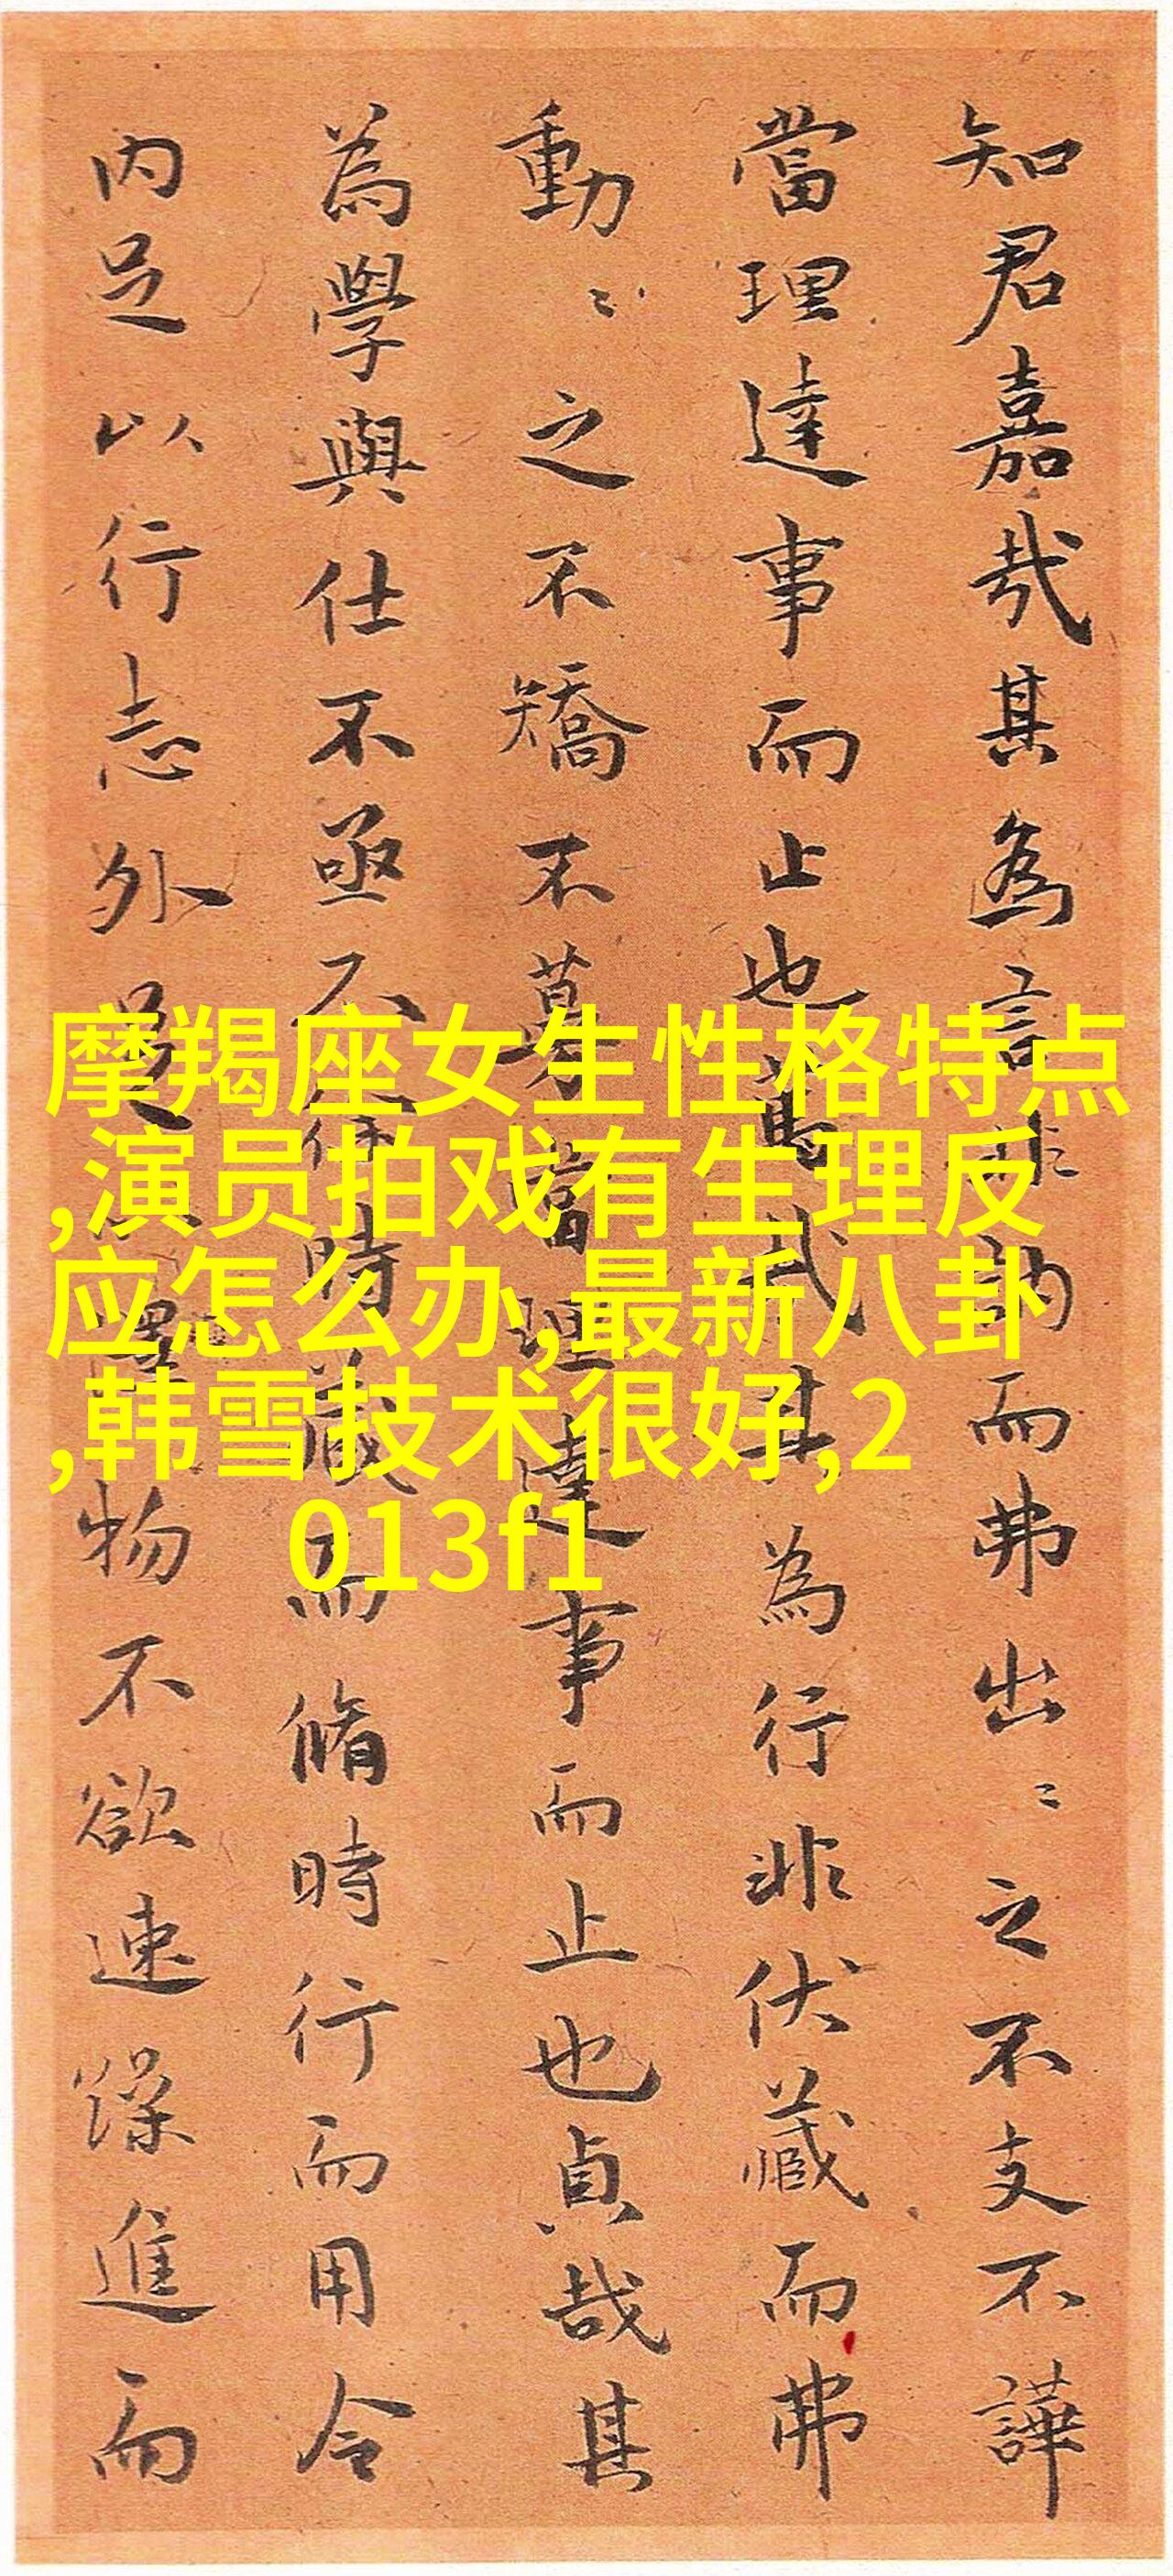 知君嘉哉其為言非訥而弗出〻之不支不譁
當理達事而止也哉其為行非伏藏而弗
動〻之不矯不當理達事而止也貞哉其
為學與仕不亟不時藏而脩時行而用令
内足以行志外足以澤物不欲速躁進而
摩羯座女生性格特点
,演员拍戏有生理反
应怎么办,最新八卦
,韩雪技术很好,2
013f1